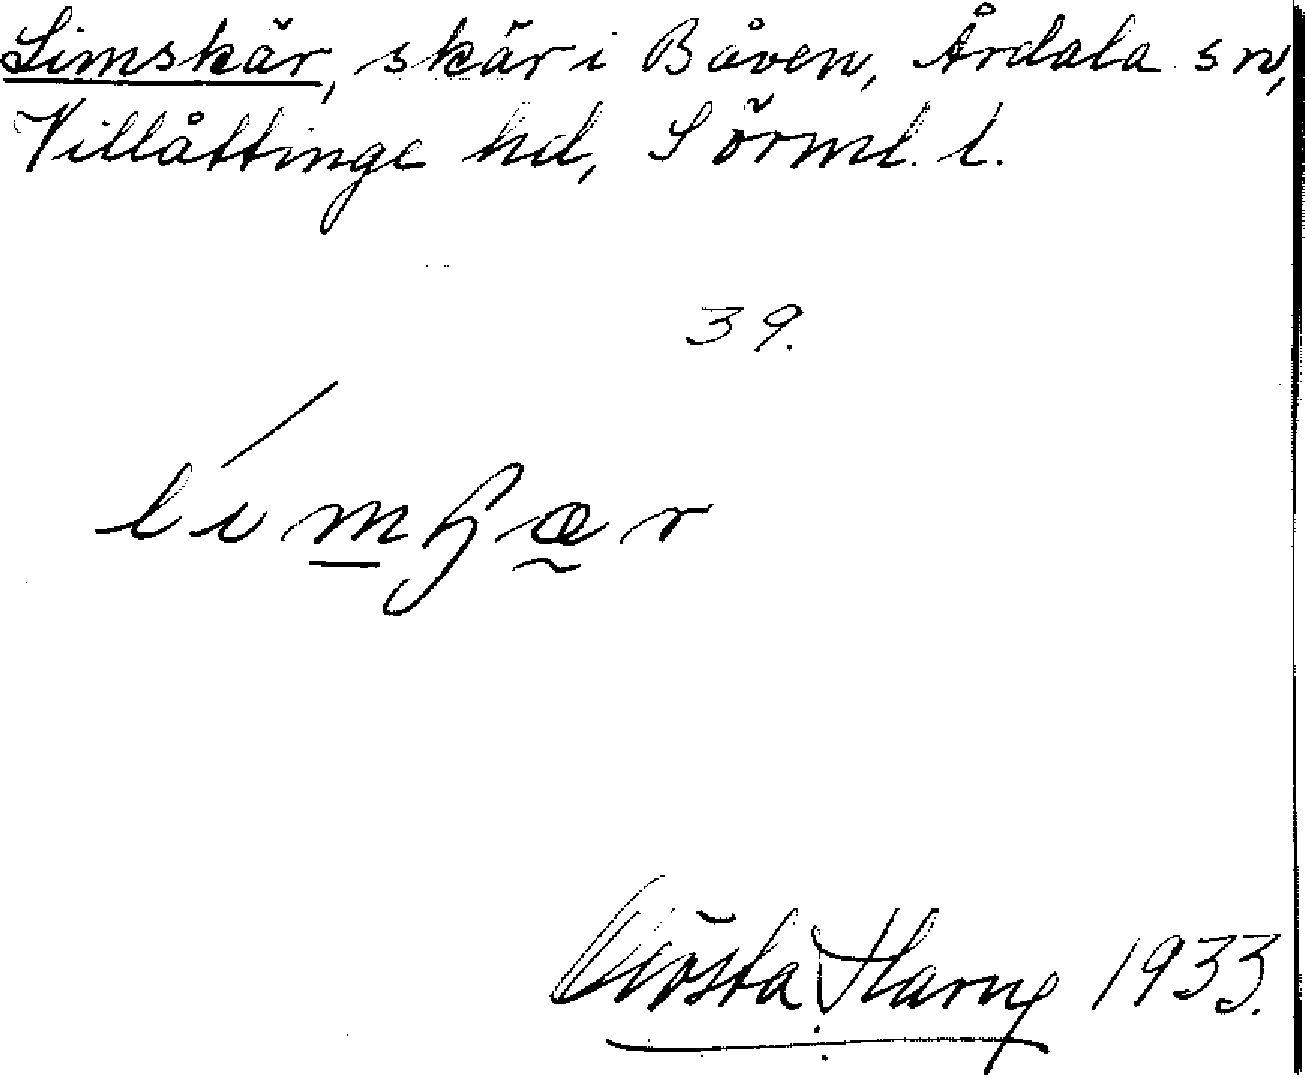 Limskär, skär i Båven, Årdala sn,
Villåttinge hd, Sörml. l.
39.
Gösta Harng 1933.